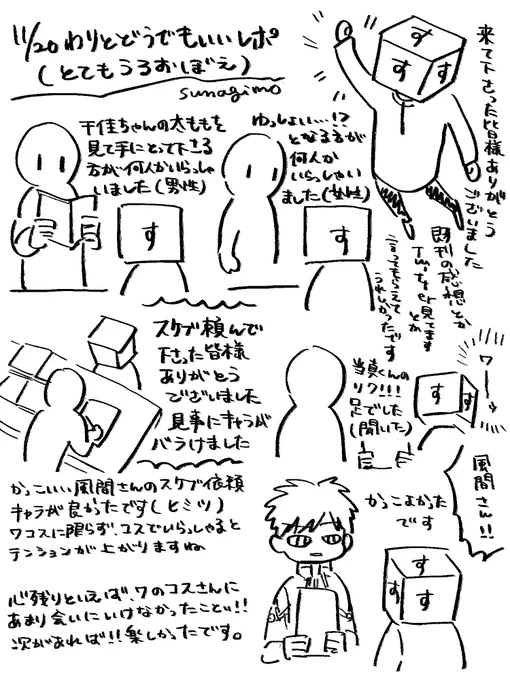 11/20 わりとどうでもいいレポ
(とてもうろおぼえ)
sunagimo
す
す
す
来て下さった皆様ありがとう
ございました
既刊の感想とか
Twitter見てます
とか
言ってもらえて
うれしかったです
千佳ちゃんの太ももを
見て手にとって下さる
方が何人かいらっしゃ
いました(男性)
す
ゆっしょい…!?
となる方が
何人か
いらっしゃい
ました(女性)
す
スケブ頼んで
下さった皆様
ありがとう
ございました
見事にキャラが
バラけました
当真くんの
リク!!!
足でした
(開いた)
す
ワーッ
かっこいい風間さんのスケブ依頼
キャラが良かったです(ヒミツ)
ワコスに限らず、コスでいらっしゃると
テンションが上がりますね
心残りといえば、ワのコスさんに
あまり会いにいけなかったこと…!!
次があれば!!楽しかったです。
風間さん!!
かっこよかった
です
す
す
す